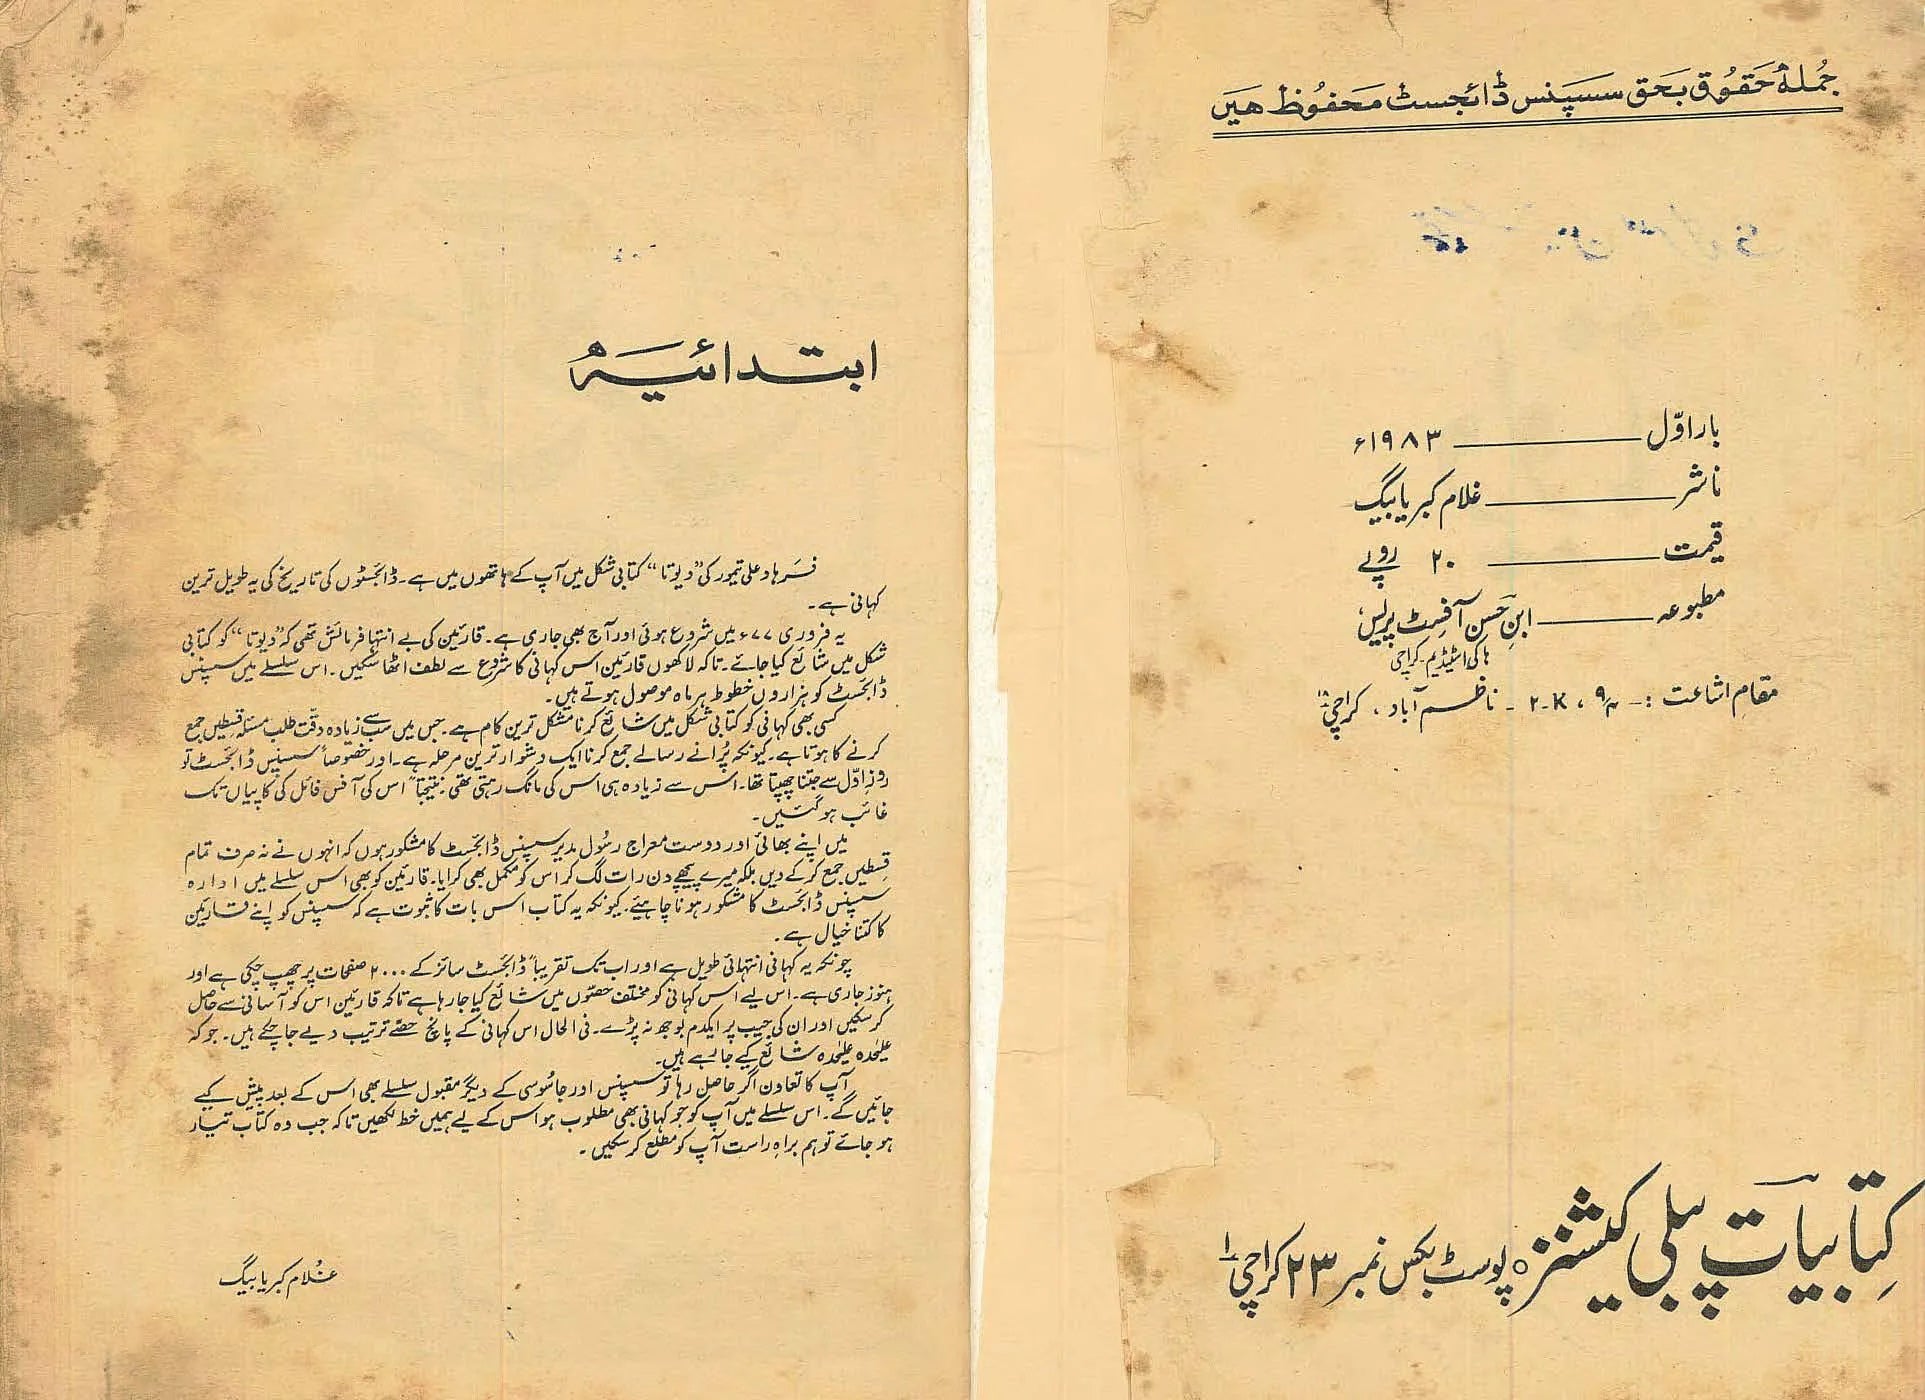 جُملہ حَقوُق بَحق سسپنس ڈائجسٹ مَحفوُظ هَیں
بار اوّل ـــــ ۱۹۸۳ء
ناشر ـــــ غلام کبریا بیگ
قیمت ـــــ ۲۰ روپے
مطبوعہ ـــــ ابنِ حَسن آفسٹ پریس،
ہاکی اسٹیڈیم۔ کراچی
مقامِ اشاعت :۔ ۹/۳ ، ۲-K ۔ ناظم آباد ، کراچی ۱۸
کِتابیات پبلی کیشنز ○ پوسٹ بکس نمبر ۲۳ کراچی ۱
ابتدائیہ
فرہاد علی تیمور کی ”دیوتا“ کتابی شکل میں آپ کے ہاتھوں میں ہے۔ ڈائجسٹوں کی تاریخ کی یہ طویل ترین
کہانی ہے۔
یہ فروری ۷۷ء میں شروع ہوئی اور آج بھی جاری ہے۔ قارئین کی بے انتہا فرمائش تھی کہ ”دیوتا“ کو کتابی
شکل میں شائع کیا جائے۔ تاکہ لاکھوں قارئین اس کہانی کا شروع سے لطف اٹھا سکیں۔ اس سلسلے میں سسپنس
ڈائجسٹ کو ہزاروں خطوط ہر ماہ موصول ہوتے ہیں۔
کسی بھی کہانی کو کتابی شکل میں شائع کرنا مشکل ترین کام ہے۔ جس میں سب سے زیادہ دقّت طلب مسئلہ قسطیں جمع
کرنے کا ہوتا ہے۔ کیونکہ پُرانے رسالے جمع کرنا ایک دشوار ترین مرحلہ ہے۔ اور خصوصاً سسپنس ڈائجسٹ تو
روزِ اوّل سے جتنا چھپتا تھا۔ اس سے زیادہ ہی اس کی مانگ رہتی تھی۔ نتیجتاً اس کی آفس فائل کی کاپیاں تک
غائب ہو گئیں۔
میں اپنے بھائی اور دوست معراج رسُول مدیر سسپنس ڈائجسٹ کا مشکور ہوں کہ انہوں نے نہ صرف تمام
قسطیں جمع کر کے دیں بلکہ میرے پیچھے دن رات لگ کر اس کو مکمل بھی کرایا۔ قارئین کو بھی اس سلسلے میں ادارہ
سسپنس ڈائجسٹ کا مشکور ہونا چاہیئے۔ کیونکہ یہ کتاب اس بات کا ثبوت ہے کہ سسپنس کو اپنے قارئین
کا کتنا خیال ہے۔
چونکہ یہ کہانی انتہائی طویل ہے اور اب تک تقریباً ڈائجسٹ سائز کے ۲۰۰۰ صفحات پر چھپ چکی ہے اور
ہنوز جاری ہے۔ اس لیے اس کہانی کو مختلف حصّوں میں شائع کیا جا رہا ہے تاکہ قارئین اس کو آسانی سے حاصل
کر سکیں اور ان کی جیب پر ایکدم بوجھ نہ پڑے۔ فی الحال اس کہانی کے پانچ حصّے ترتیب دیے جا چکے ہیں۔ جو کہ
علیٰحدہ علیٰحدہ شائع کیے جا رہے ہیں۔
آپ کا تعاون اگر حاصل رہا تو سسپنس اور جاسُوسی کے دیگر مقبول سلسلے بھی اس کے بعد پیش کیے
جائیں گے۔ اس سلسلے میں آپ کو جو کہانی بھی مطلوب ہو اس کے لیے ہمیں خط لکھیں تاکہ جب وہ کتاب تیار
ہو جائے تو ہم براہِ راست آپ کو مطلع کر سکیں۔
غُلام کبریا بیگ